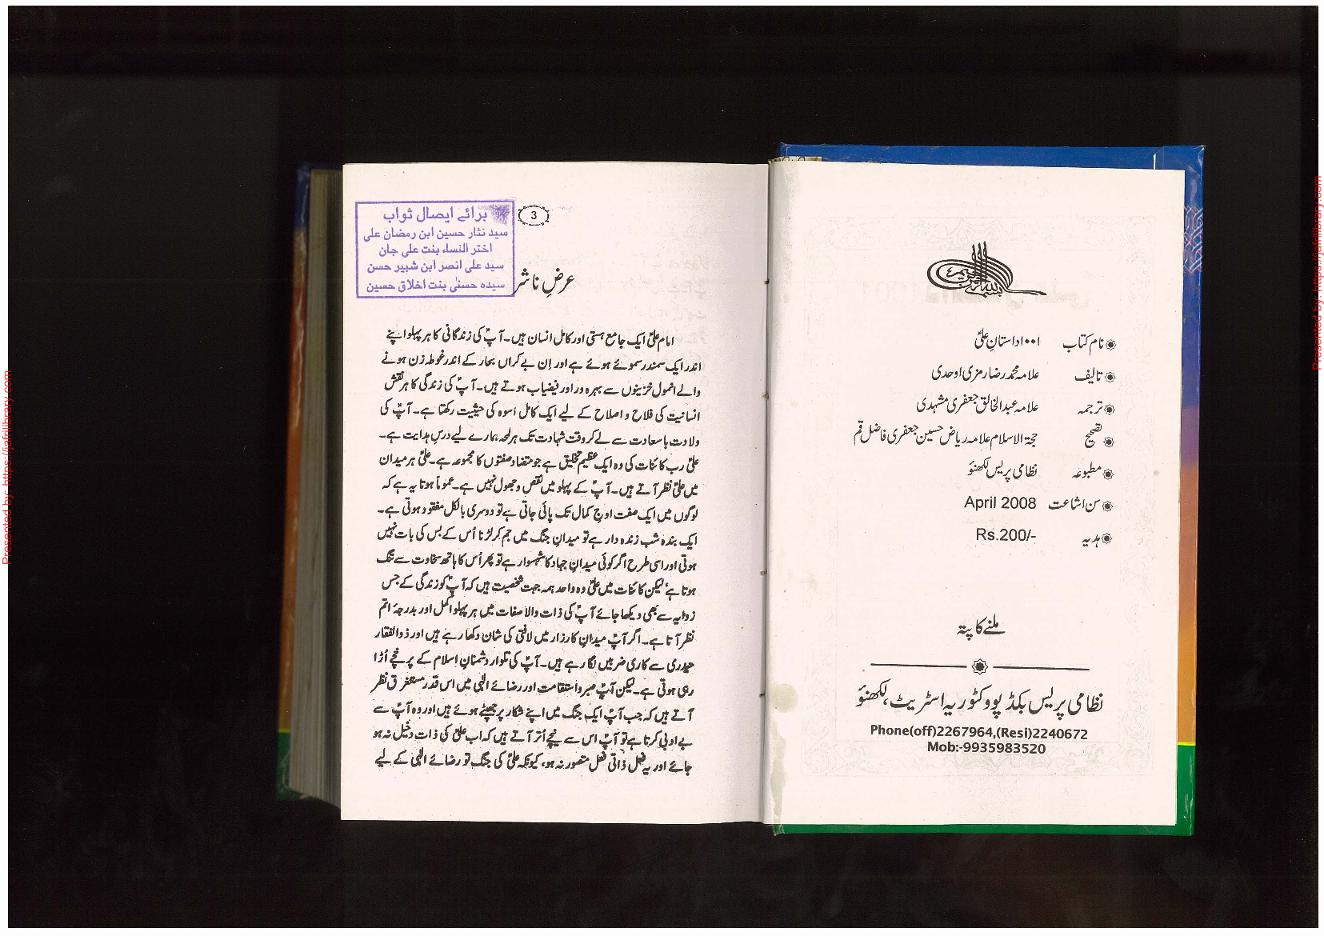 بسم اللہ الرحمن الرحیم
نام کتاب ۱۰۰۱ داستانِ علیؑ
تالیف علامہ محمد رضا رمزی اوحدی
ترجمہ علامہ عبدالخالق جعفری مشہدی
تصحیح حجۃ الاسلام علامہ ریاض حسین جعفری فاضل قم
مطبوعہ نظامی پریس لکھنؤ
سن اشاعت April 2008
ہدیہ Rs.200/-
ملنے کا پتہ
نظامی پریس بکڈپو وکٹوریہ اسٹریٹ، لکھنؤ
Phone(off)2267964,(Resi)2240672
Mob:-9935983520
3
برائے ایصال ثواب
سید نثار حسین ابن رمضان علی
اختر النساء بنت علی جان
سید علی انصر ابن شبیر حسن
سیدہ حسنیٰ بنت اخلاق حسین
عرضِ ناشر
امام علیؑ ایک جامع ہستی اور کامل انسان ہیں۔ آپؑ کی زندگانی کا ہر پہلو اپنے
اندر ایک سمندر سموئے ہوئے ہے اور اِن بے کراں بحار کے اندر غوطہ زن ہونے
والے انمول خزینوں سے بہرہ ور اور فیضیاب ہوتے ہیں۔ آپؑ کی زندگی کا ہر نقش
انسانیت کی فلاح و اصلاح کے لیے ایک کامل اُسوہ کی حیثیت رکھتا ہے۔ آپؑ کی
ولادت باسعادت سے لے کر وقت شہادت تک ہر لمحہ ہمارے لیے درسِ ہدایت ہے۔
علیؑ رب کائنات کی وہ ایک عظیم تخلیق ہے جو متضاد صفتوں کا مجموعہ ہے۔ علیؑ ہر میدان
میں علیؑ نظر آتے ہیں۔ آپؑ کے پہلو میں نقص و جھول نہیں ہے۔ عموماً ہوتا یہ ہے کہ
لوگوں میں ایک صفت اوجِ کمال تک پائی جاتی ہے تو دوسری بالکل مفقود ہوتی ہے۔
ایک بندہ شب زندہ دار ہے تو میدانِ جنگ میں جم کر لڑنا اُس کے بس کی بات نہیں
ہوتی اور اسی طرح اگر کوئی میدانِ جہاد کا شہسوار ہے تو پھر اُس کا ہاتھ سخاوت سے تنگ
ہوتا ہے لیکن کائنات میں علیؑ وہ واحد ہمہ جہت شخصیت ہیں کہ آپؑ کو زندگی کے جس
زاویہ سے بھی دیکھا جائے آپؑ کی ذات والا صفات میں ہر پہلو اکمل اور بدرجۂ اتم
نظر آتا ہے۔ اگر آپؑ میدانِ کارزار میں لافتیٰ کی شان دکھا رہے ہیں اور ذوالفقار
حیدری سے کاری ضربیں لگا رہے ہیں۔ آپؑ کی تلوار دشمنانِ اسلام کے پرخچے اُڑا
رہی ہوتی ہے۔ لیکن آپؑ صبر و استقامت اور رضائے الٰہی میں اس قدر مستغرق نظر
آتے ہیں کہ جب آپؑ ایک جنگ میں اپنے شکار پر جھپٹے ہوئے ہیں اور وہ آپؑ سے
بے ادبی کرتا ہے تو آپؑ اس سے نیچے اُتر آتے ہیں کہ اب علیؑ کی ذات دخیل نہ ہو
جائے اور یہ فعل ذاتی فعل متصور نہ ہو، کیونکہ علیؑ کی جنگ تو رضائے الٰہی کے لیے
Presented by: https://jafrilibrary.com
Presented by: https://jafrilibrary.com